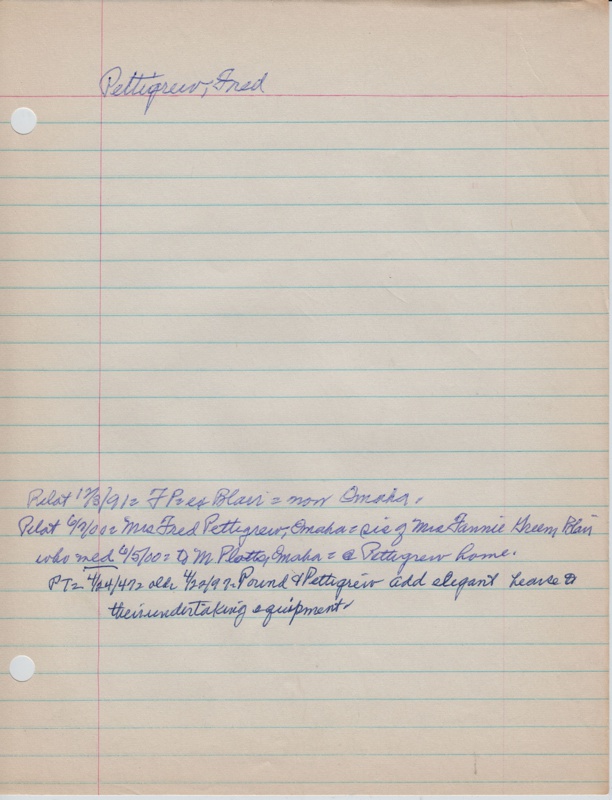 Pettigrew, Fred
Pilot 12/3/91= F P=ex Blair = now Omaha.
Pilot 6/7/00= Mrs Fred Pettigrew, Omaha = sis of Mrs Fannie Green Blair
who med 6/5/00= to M Plotts, Omaha = @ Pettigrew home.
PT= 4/24/47= older 4/22/97= Pound & Pettigrew add elegant hearse to
their undertaking equipment